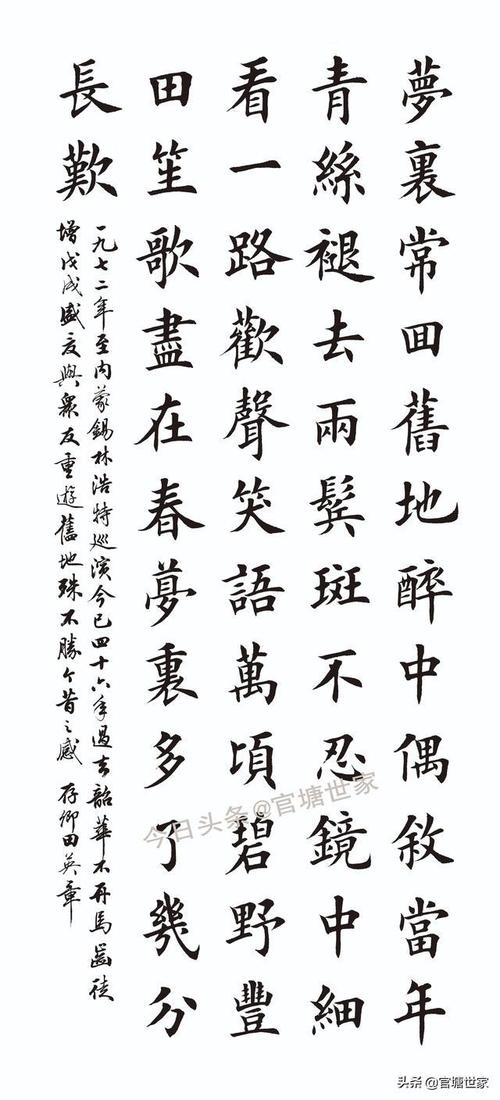 夢裏常囬舊地醉中偶敘當年
青絲褪去兩鬓斑不忍鏡中細
看一路歡聲笑語萬頃碧野豐
田笙歌盡在春夢裏多了幾分
長歎
一九七二年至内蒙錫林浩特巡演今已四十六年過去韶華不再馬齒徒
增戊戌盛夏與衆友重遊舊地殊不勝今昔之感 存卿田英章
今日头条@官塘世家
头条@官塘世家